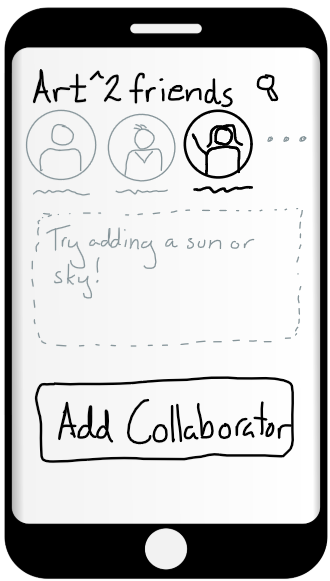 Art^2 friends
Try adding a sun or
sky!
Add Collaborator